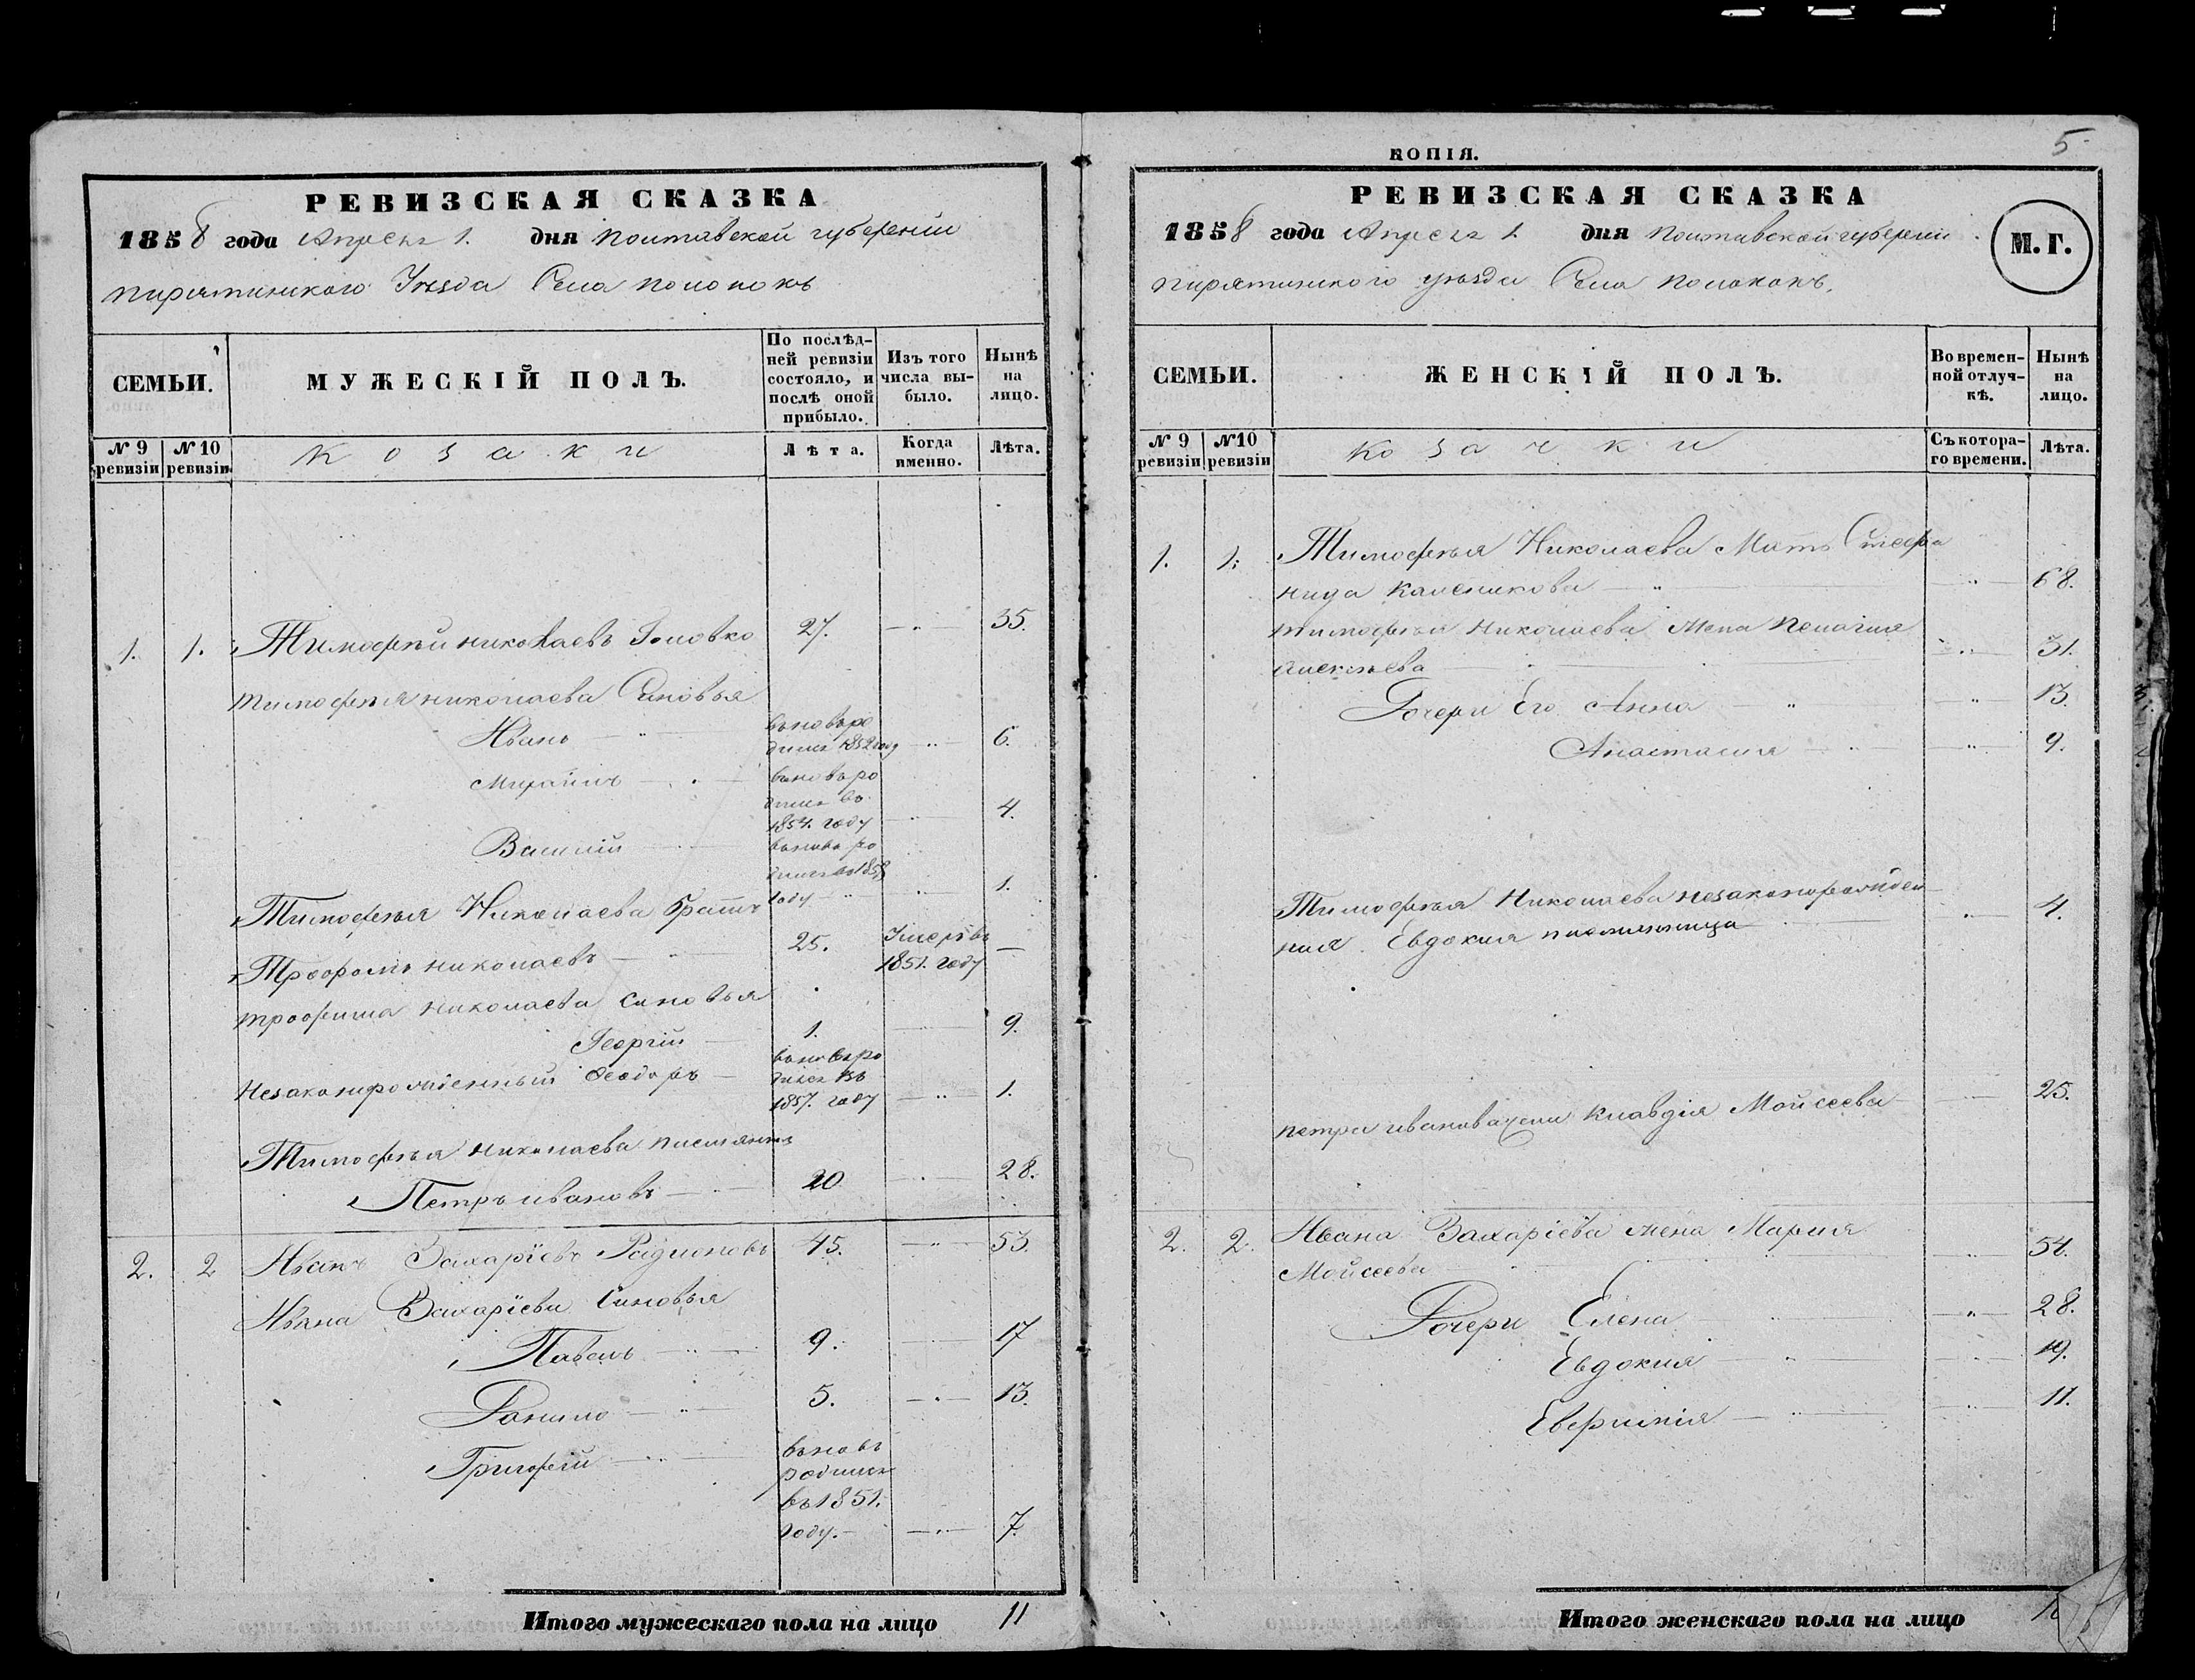 РЕВИЗСКАЯ СКАЗКА
1858 года Апреля 1. дня Полтавской губернии
Пирятинского Уезда Села Полонокъ
СЕМЬИ.
МУЖЕСКІЙ ПОЛЪ.
По послѣд-
ней ревизіи
состояло, и
послѣ оной
прибыло.
Изъ того
числа вы-
было.
Нынѣ
на
лицо.
№ 9
ревизіи
№ 10
ревизіи
козаки
Лѣта.
Когда
именно.
Лѣта.
1. 1. Тимофѣй Николаевъ Головко 27. 35.
Тимофѣя Николаева Сыновья
Иванъ вновь ро
дился 1852 год 6.
Михаилъ вновь ро
дился въ
1854. году 4.
Василій вновь ро
дился въ 1858
году 1.
Тимофѣя Николаева братъ
Трофимъ Николаевъ 25. Умеръ въ
1851. году
Трофима Николаева сыновья
Георгій 1. 9.
Незаконнорожденный Феодоръ вновь ро
дился въ
1857. году 1.
Тимофѣя Николаева племянникъ
Петръ Ивановъ 20 28.
2. 2 Иванъ Захаріевъ Радионовъ 45. 53.
Ивана Захаріева Сыновья
Павелъ 9. 17
Данило 5. 13.
Григорій вновь
родился
въ 1851.
году. 7.
Итого мужескаго пола на лицо 11
КОПІЯ.
5
РЕВИЗСКАЯ СКАЗКА
1858 года Апреля 1. дня Полтавской губернии
Пирятинского уѣзда Села Полонокъ.
М.Г.
СЕМЬИ.
ЖЕНСКІЙ ПОЛЪ.
Во времен-
ной отлуч-
кѣ.
Нынѣ
на
лицо.
№ 9
ревизіи
№ 10
ревизіи
козачки
Съ котора-
го времени.
Лѣта.
1. 1. Тимофѣя Николаева Мать Стефа
нида 68.
Тимофѣя Николаева жена Пелагия
Алексѣева 31.
Дочери Его Анна 13.
Анастасия 9.
Тимофѣя Николаева незаконорожден
ная Евдокия племянница 4.
Петра Иванова жена Клавдія Мойсеева 25.
2. 2. Ивана Захаріева жена Мария
Мойсеева 54.
Дочери Елена 28.
Евдокия 19.
Евфимія 11.
Итого женскаго пола на лицо